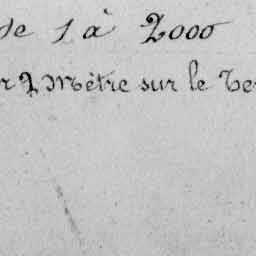 de 1 à 2000
r 2 Mètre sur le Te